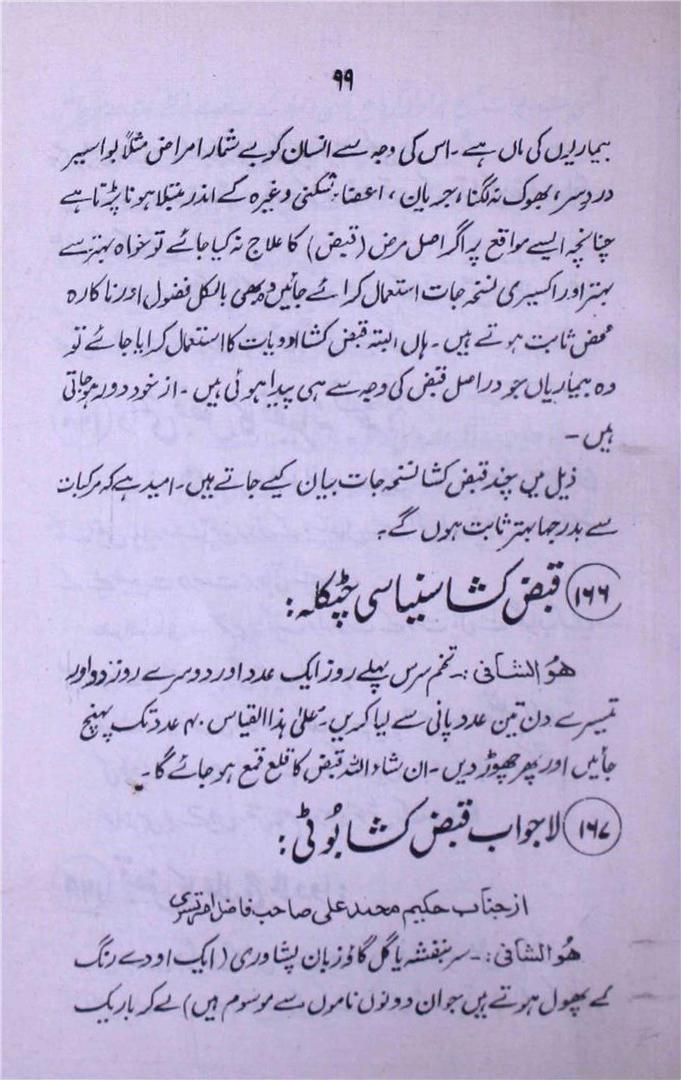 ۹۹
بیماریوں کی ماں ہے ۔ اس کی وجہ سے انسان کو بے شمار امراض مثلاً بواسیر
دردِسر، بھوک نہ لگنا، جریان، اعضاء شکنی وغیرہ کے اندر مبتلا ہونا پڑتا ہے
چنانچہ ایسے مواقع پر اگر اصل مرض (قبض) کا علاج نہ کیا جائے تو خواہ بہتر سے
بہتر اور اکسیری نسخہ جات استعمال کرائے جائیں وہ بھی بالکل فضول اور ناکارہ
محض ثابت ہوتے ہیں ۔ ہاں البتہ قبض کشا ادویات کا استعمال کرایا جائے تو
وہ بیماریاں جو دراصل قبض کی وجہ سے ہی پیدا ہوئی ہیں ۔ از خود دور ہوجاتی
ہیں ۔
ذیل میں چند قبض کشا نسخہ جات بیان کیے جاتے ہیں ۔ امید ہے کہ مرکبات
سے بدرجہا بہتر ثابت ہوں گے ۔
۱۶۶ قبض کشا سنیاسی چٹکلہ :
ھُوَ الشافی :۔ تخم سرس پہلے روز ایک عدد اور دوسرے روز دو اور
تیسرے دن تین عدد پانی سے لیا کریں ۔ علیٰ ہذا القیاس ۴۰ عدد تک پہنچ
جائیں اور پھر چھوڑ دیں ۔ ان شاء اللہ قبض کا قلع قمع ہو جائے گا ۔
۱۶۷ لاجواب قبض کشا بُوٹی :
از جناب حکیم محمد علی صاحب فاضل امرتسری
ھُوَ الشافی :۔ سر بنفشہ یا گل گاؤزبان پشاوری (ایک اودے رنگ
کے پھول ہوتے ہیں جو ان دونوں ناموں سے موسوم ہیں) لے کر باریک